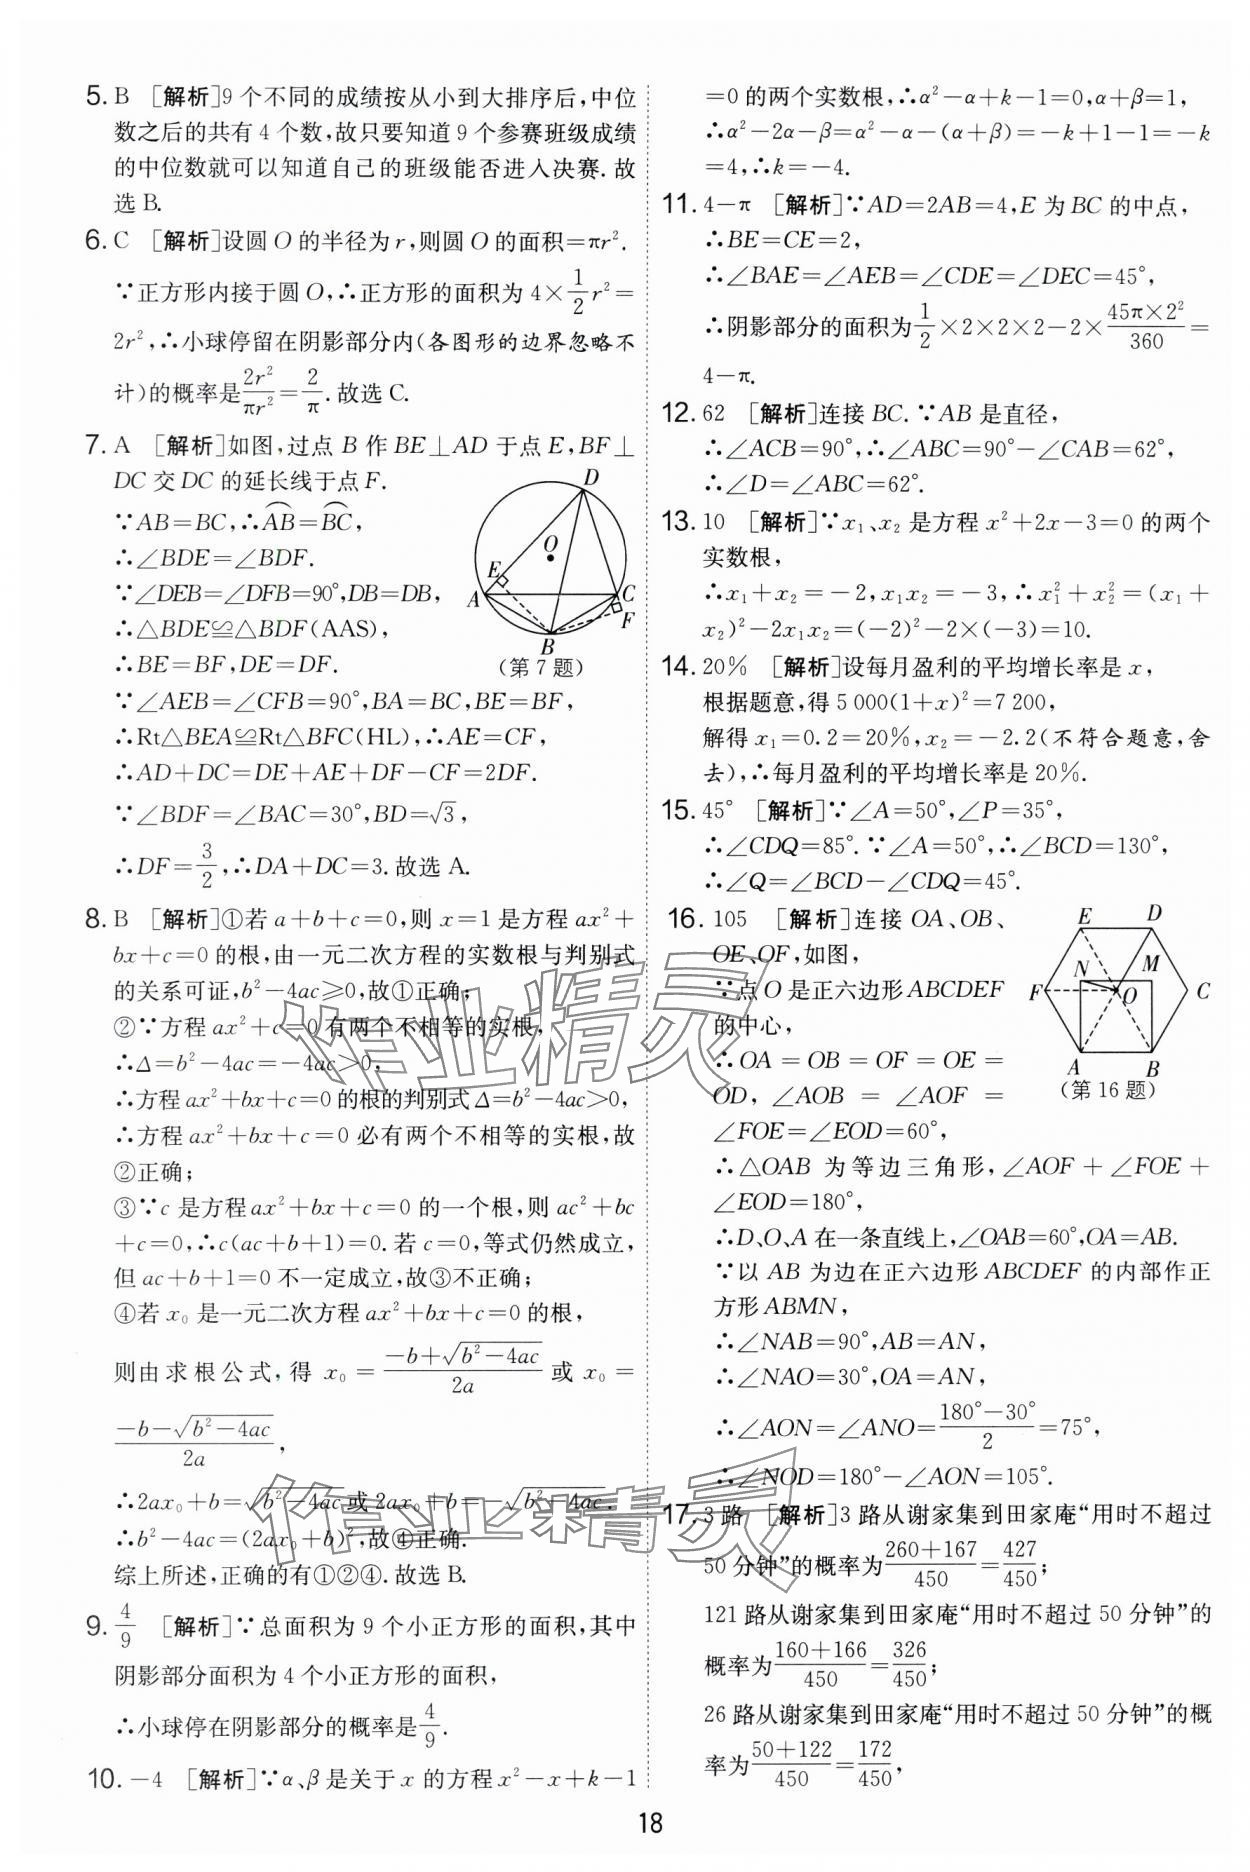 5. B [解析]9 个不同的成绩按从小到大排序后,中位
数之后的共有 4 个数,故只要知道 9 个参赛班级成绩
的中位数就可以知道自己的班级能否进入决赛. 故
选 B.
6. C [解析]设圆 O 的半径为 r,则圆 O 的面积=πr².
∵正方形内接于圆 O,∴正方形的面积为 4×1/2r²=
2r²,∴小球停留在阴影部分内(各图形的边界忽略不
计)的概率是2r²/πr²=2/π.故选 C.
7. A [解析]如图,过点 B 作 BE⊥AD 于点 E,BF⊥
DC 交 DC 的延长线于点 F.
∵AB=BC,∴⌒AB=⌒BC,
∴∠BDE=∠BDF.
∵∠DEB=∠DFB=90°,DB=DB,
∴△BDE≌△BDF(AAS),
∴BE=BF,DE=DF.
∵∠AEB=∠CFB=90°,BA=BC,BE=BF,
∴Rt△BEA≌Rt△BFC(HL),∴AE=CF,
∴AD+DC=DE+AE+DF-CF=2DF.
∵∠BDF=∠BAC=30°,BD=√3,
∴DF=3/2,∴DA+DC=3.故选 A.
D
O
E
A
C
F
B
(第 7 题)
8. B [解析]①若 a+b+c=0,则 x=1 是方程 ax²+
bx+c=0 的根,由一元二次方程的实数根与判别式
的关系可证,b²-4ac≥0,故①正确;
②∵方程 ax²+c=0 有两个不相等的实根,
∴Δ=b²-4ac=-4ac>0,
∴方程 ax²+bx+c=0 的根的判别式 Δ=b²-4ac>0,
∴方程 ax²+bx+c=0 必有两个不相等的实根,故
②正确;
③∵c 是方程 ax²+bx+c=0 的一个根,则 ac²+bc
+c=0,∴c(ac+b+1)=0. 若 c=0,等式仍然成立,
但 ac+b+1=0 不一定成立,故③不正确;
④若 x₀ 是一元二次方程 ax²+bx+c=0 的根,
则由求根公式,得 x₀=(-b+√(b²-4ac))/2a 或 x₀=
(-b-√(b²-4ac))/2a,
∴2ax₀+b=√(b²-4ac)或 2ax₀+b=-√(b²-4ac).
∴b²-4ac=(2ax₀+b)²,故④正确.
综上所述,正确的有①②④. 故选 B.
9. 4/9 [解析]∵总面积为 9 个小正方形的面积,其中
阴影部分面积为 4 个小正方形的面积,
∴小球停在阴影部分的概率是4/9.
10. -4 [解析]∵α、β 是关于 x 的方程 x²-x+k-1
=0 的两个实数根,∴α²-α+k-1=0,α+β=1,
∴α²-2α-β=α²-α-(α+β)=-k+1-1=-k
=4,∴k=-4.
11. 4-π [解析]∵AD=2AB=4,E 为 BC 的中点,
∴BE=CE=2,
∴∠BAE=∠AEB=∠CDE=∠DEC=45°,
∴阴影部分的面积为1/2×2×2×2-2×(45π×2²)/360=
4-π.
12. 62 [解析]连接 BC. ∵AB 是直径,
∴∠ACB=90°,∴∠ABC=90°-∠CAB=62°,
∴∠D=∠ABC=62°.
13. 10 [解析]∵x₁、x₂ 是方程 x²+2x-3=0 的两个
实数根,
∴x₁+x₂=-2,x₁x₂=-3,∴x₁²+x₂²=(x₁+
x₂)²-2x₁x₂=(-2)²-2×(-3)=10.
14. 20% [解析]设每月盈利的平均增长率是 x,
根据题意,得 5 000(1+x)²=7 200,
解得 x₁=0.2=20%,x₂=-2.2(不符合题意,舍
去),∴每月盈利的平均增长率是 20%.
15. 45° [解析]∵∠A=50°,∠P=35°,
∴∠CDQ=85°. ∵∠A=50°,∴∠BCD=130°,
∴∠Q=∠BCD-∠CDQ=45°.
16. 105 [解析]连接 OA、OB、
OE、OF,如图,
∵点 O 是正六边形 ABCDEF
的中心,
∴OA=OB=OF=OE=
OD,∠AOB=∠AOF=
∠FOE=∠EOD=60°,
∴△OAB 为等边三角形,∠AOF+∠FOE+
∠EOD=180°,
∴D、O、A 在一条直线上,∠OAB=60°,OA=AB.
∵以 AB 为边在正六边形 ABCDEF 的内部作正
方形 ABMN,
∴∠NAB=90°,AB=AN,
∴∠NAO=30°,OA=AN,
∴∠AON=∠ANO=(180°-30°)/2=75°,
∴∠NOD=180°-∠AON=105°.
E D
N M
F O C
A B
(第 16 题)
17. 3 路 [解析]3 路从谢家集到田家庵“用时不超过
50 分钟”的概率为(260+167)/450=427/450;
121 路从谢家集到田家庵“用时不超过 50 分钟”的
概率为(160+166)/450=326/450;
26 路从谢家集到田家庵“用时不超过 50 分钟”的概
率为(50+122)/450=172/450,
作业精灵
作业精灵
18